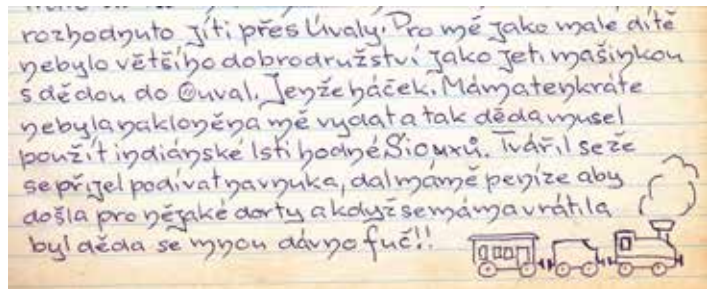 rozhodnuto jíti přes Úvaly. Pro mě jako malé dítě
nebylo většího dobrodružství jako jeti mašinkou
s dědou do Ouval. Jenže háček. Máma tenkráte
nebyla nakloněna mě vydat a tak děda musel
použít indiánské lsti hodné Siouxů. Tvářil se že
se přijel podívat na vnuka, dal mámě peníze aby
došla pro nějaké dorty a když se máma vrátila
byl děda se mnou dávno fuč!!